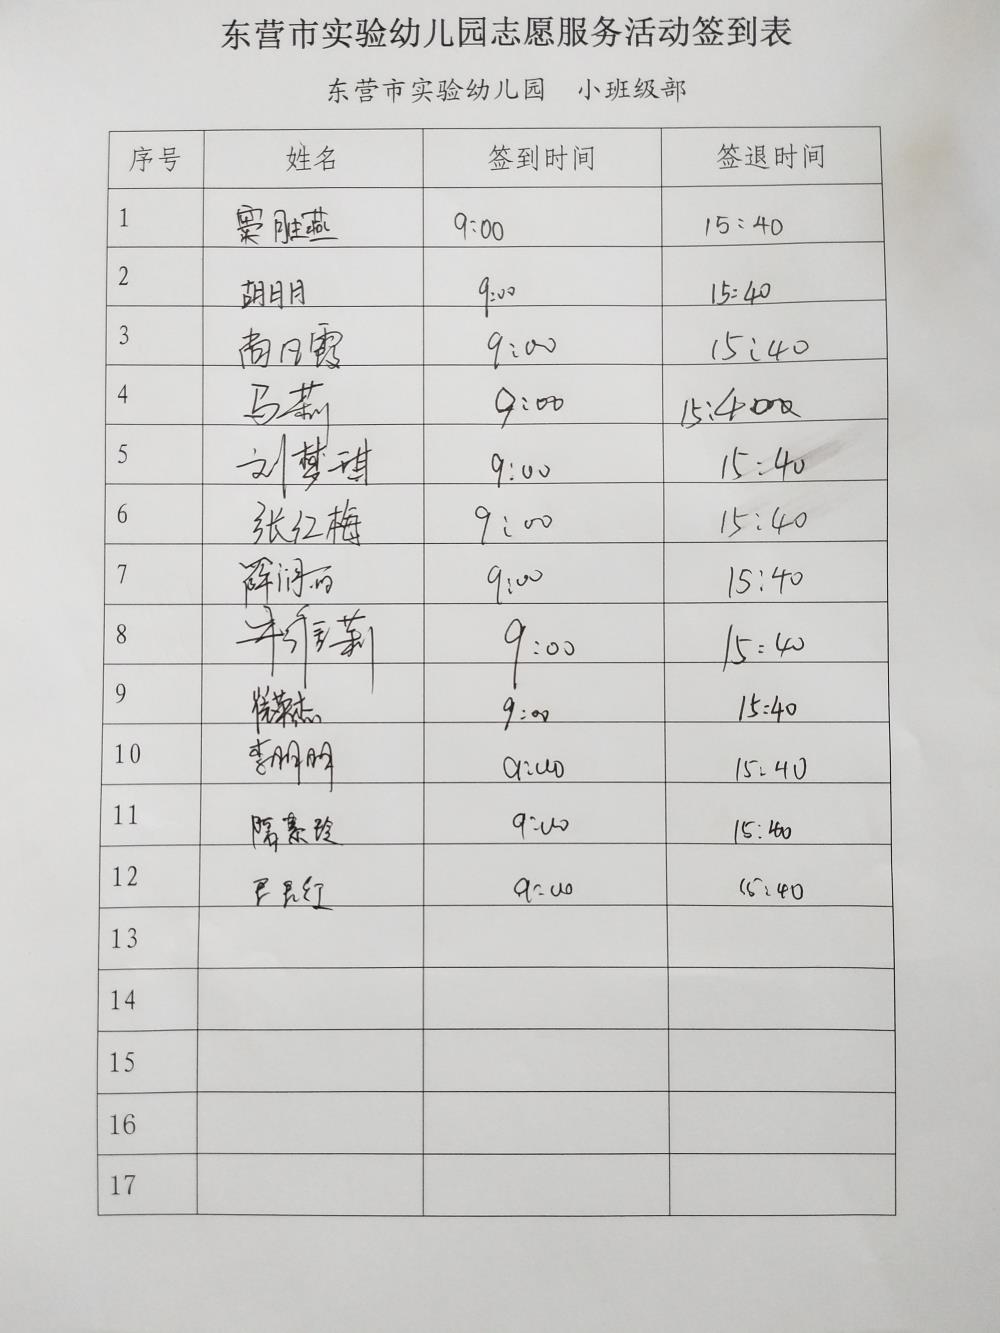 东营市实验幼儿园志愿服务活动签到表
东营市实验幼儿园 小班级部
序号 姓名 签到时间 签退时间
1 窦胜燕 9:00 15:40
2 胡月月 9:00 15:40
3 尚月霞 9:00 15:40
4 马莉 9:00 15:40
5 刘梦琪 9:00 15:40
6 张红梅 9:00 15:40
7 薛润 9:00 15:40
8 莉 9:00 15:40
9 杰 9:00 15:40
10 李明明 9:00 15:40
11 隋素玲 9:00 15:40
12 红 9:00 15:40
13
14
15
16
17